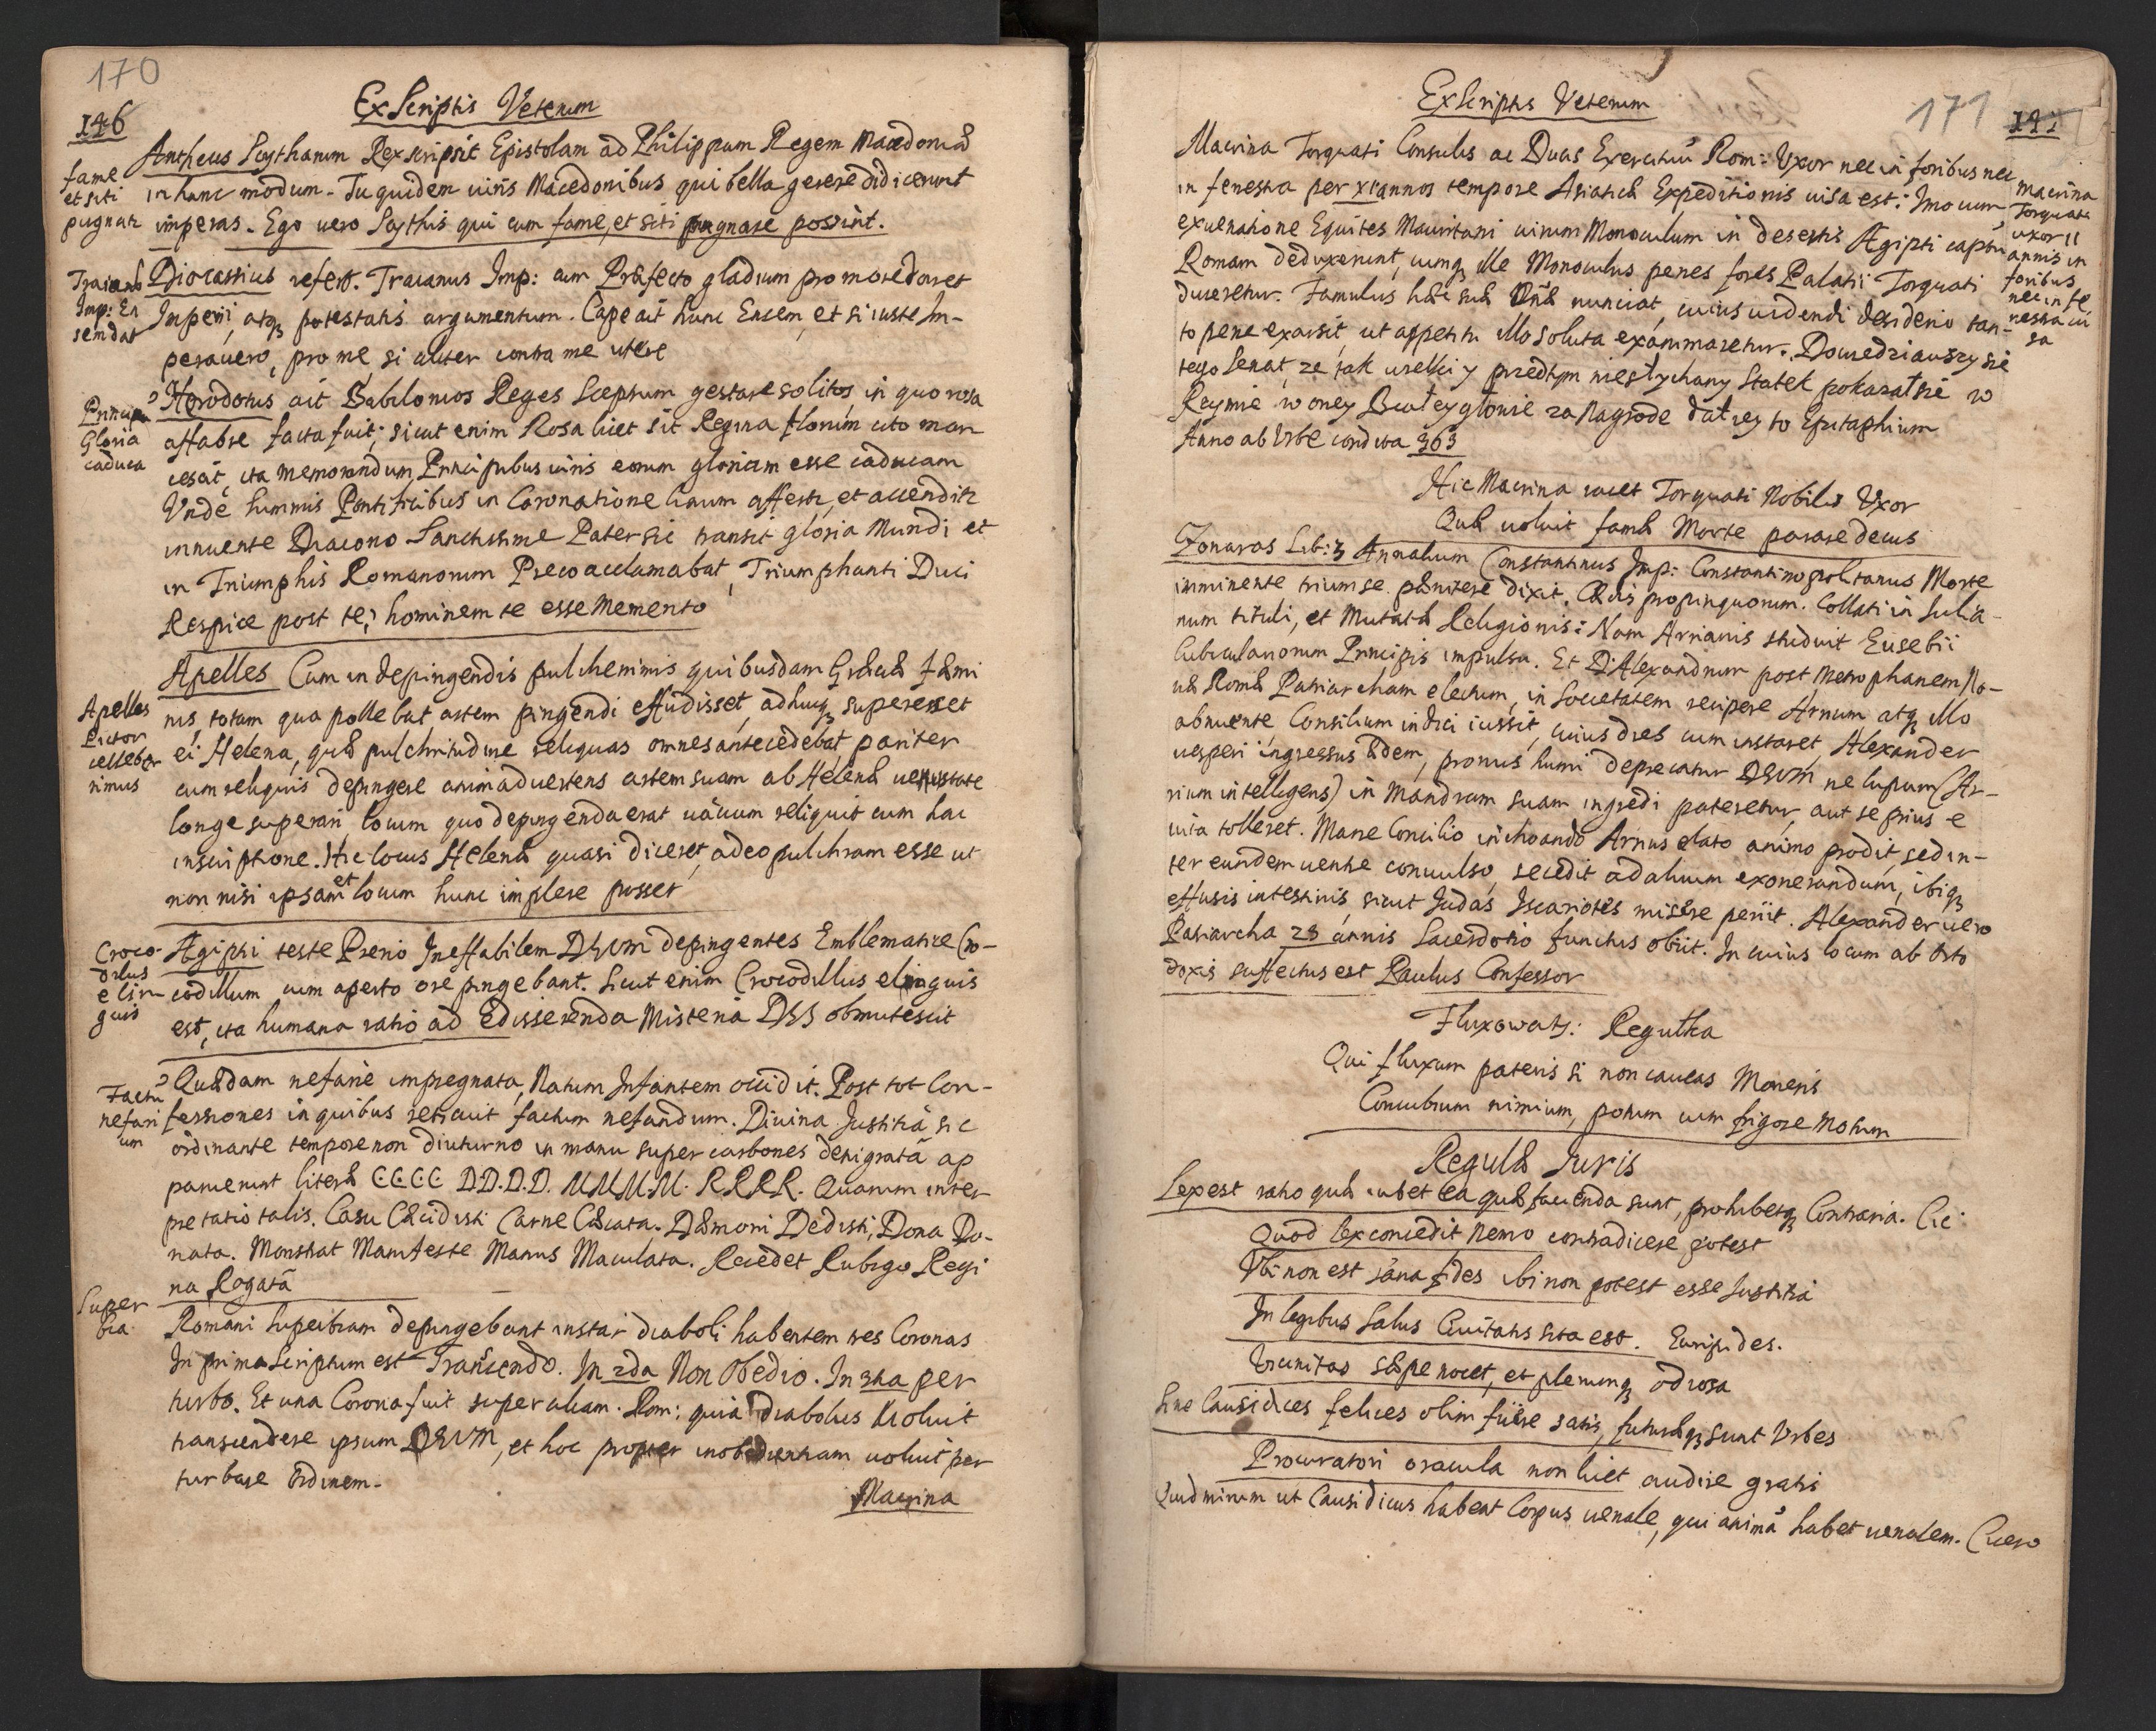 170
146
Ex Scriptis Veterum
Antheus Scytharum Rex scripsit Epistolam ad Philippum Regem Macedoniæ
in hunc modum. Tu quidem uiris Macedonibus qui bella gerere didicerunt
imperas. Ego uero Scythis qui cum fame, et siti pugnare possint.
fame
et siti
pugnatr
Diocassius refert. Traianus Imp: cum Præfecto gladium pro more daret
Imperii, atqꝫ potestatis argumentum. Cape ait hunc Ensem, et si iuste Im-
perauero, pro me, si aliter contra me utere
Traianꝰ
Imp: En
sem dat
Herodotus ait Babilonios Reges Sceptrum gestare solitos in quo rosa
affabre facta fuit; sicut enim Rosa licet sit Regina florum cito mar
cescit, ita memorandum Principibus uiris eorum gloriam esse caducam
Vnde Summis Pontificibus in Coronatione linum affertr, et accenditr
innuente Diacono Sanctissime Pater sic transit gloria Mundi et
in Triumphis Romanorum Preco acclamabat, Triumphanti Duci
Respice post te, hominem te esse Memento
Principū
Gloria
caduca
Apelles Cum in depingendis pulcherrimis quibusdam Græciæ fæmi
nis, totam qua pollebat artem pingendi effudisset, adhucqꝫ superesset
ei Helena, quæ pulchritudine reliquas omnes antecedebat pariter
cum reliquis depingere animaduertens artem suam ab Helenæ uenustate
longe superari, locum quo depingenda erat uacuum reliquit cum hac
inscriptione. Hic locus Helenæ quasi diceret, adeo pulchram esse ut
non nisi ipsam et locum hunc implere posset
Apelles
Pictor
celleber
rimus
Ægipti teste Pierio Ineffabilem DEVM depingentes Emblematice Cro-
codillum cum aperto ore pingebant. Sicut enim Crocodillus elinguis
est, ita humana ratio ad Edisserenda Misteria DEI obmutescit
Croco-
dilus
elin-
guis
Quædam nefarie impregnata, Natum Infantem occidit. Post tot Con-
fessiones in quibus reticuit factum nefandum. Diuina Justitia sic
ordinante tempore non diuturno in manu super carbones denigrata ap
paruerunt literæ C.C.C.C. D.D.D.D. M.M.M.M. R.R.R.R. Quarum inter
pretatio talis. Casu Cæcidisti Carne Cæcata. Dæmoni Dedisti, Dona Do-
nata. Monstrat Manifeste Manus Maculata. Recedet Rubigo Regi
na Rogata
Factū
nefari
um
Romani Superbiam depingebant instar diaboli habentem tres Coronas
In prima Scriptum est Transcendo. In 2da Non Obedio. In 3tia per
turbo. Et una Corona fuit super aliam. Rom: quia Diabolus Uoluit
transcendere ipsum DEVM, et hoc propter inobedientiam uoluit per
turbare ordinem.
Super
bia
Macrina
171
Ex Scriptis Veterum
Macrina Torquati Consulis ac Ducis Exercituū Rom: Vxor nec in foribus nec
in fenestra per XI annos tempore Asiaticæ Expeditionis uisa est: Imo cum
Equites Mauritani uirum Monoculum in desertis Ægipti captū
Romam deduxerunt, cumqꝫ ille Monoculus penes fores Palatii Torquati
duceretur. Famulus hæc suæ Dnæ nunciat, cuius uidendi desiderio tan-
to pene exarsit, ut appetitu illo soluta exanimaretur. Dowiedziawszy się
tego Senat, ze tak wielki y przedtym nieslychany Statek pokazał się w
Rzymie w oney Białeygłowie za Nagrode dał iey to Epitaphium
Anno ab Vrbe condita 363
Macrina
Torquati
uxor 11
annis in
foribus
nec in fe
nestra ui
sa
Hic Macrina iacet Torquati Nobilis Vxor
Quæ uoluit famæ Morte parare decus
Zonaras Lib: 3 Annalium Constantinus Imp: Constantinopolitanus Morte
imminente trium se pænitere dixit. Cædis propinquorum. Collati in Iulia-
num tituli, et Mutatæ Religionis: Nam Arrianis studuit Eusebii
Cubiculariorum Principis impulsu. Et D: Alexandrum post Metrophanem No-
uæ Romæ Patriarcham electum, in Societatem recipere Arrium atqꝫ illo
abnuente Consilium indici iussit, cuius dies cum instaret, Alexander
uesperi ingressus ædem, pronus humi deprecatur DEVM ne lupum (Ar-
rium intelligens) in Mandram suam ingredi pateretur, aut se prius e
uita tolleret. Mane Concilio inchoando Arrius elato animo prodit, sed in-
ter eundem uentre conuulso, secedit ad aluum exonerandum, ibiqꝫ
effusis intestinis, sicut Judas Iscariotes misere periit. Alexander uero
Patriarcha 23 annis Sacerdotio functus obiit. In cuius locum ab Orto
doxis suffectus est Paulus Confessor
Fluxowaty: Regułka
Qui fluxum pateris si non caueas Morieris
Concubitum nimium, potum cum frigore Motum
Regulæ Juris
Lex est ratio quæ iubet ea quæ facienda sunt, prohibetqꝫ Contraria. Cic:
Quod lex concedit Nemo contradicere potest
Vbi non est sana fides ibi non potest esse Justitia
In legibus Salus Ciuitatis sita est. Euripides.
sæpe nocet, et plerumqꝫ odiosa
Sine Causidices felices olim fuere satis, futuræqꝫ sunt Vrbes
Procuratori oracula non licet audire gratis
Quid mirum ut Causidicus habeat Corpus uenale, qui animā habet uenalem. Cicero